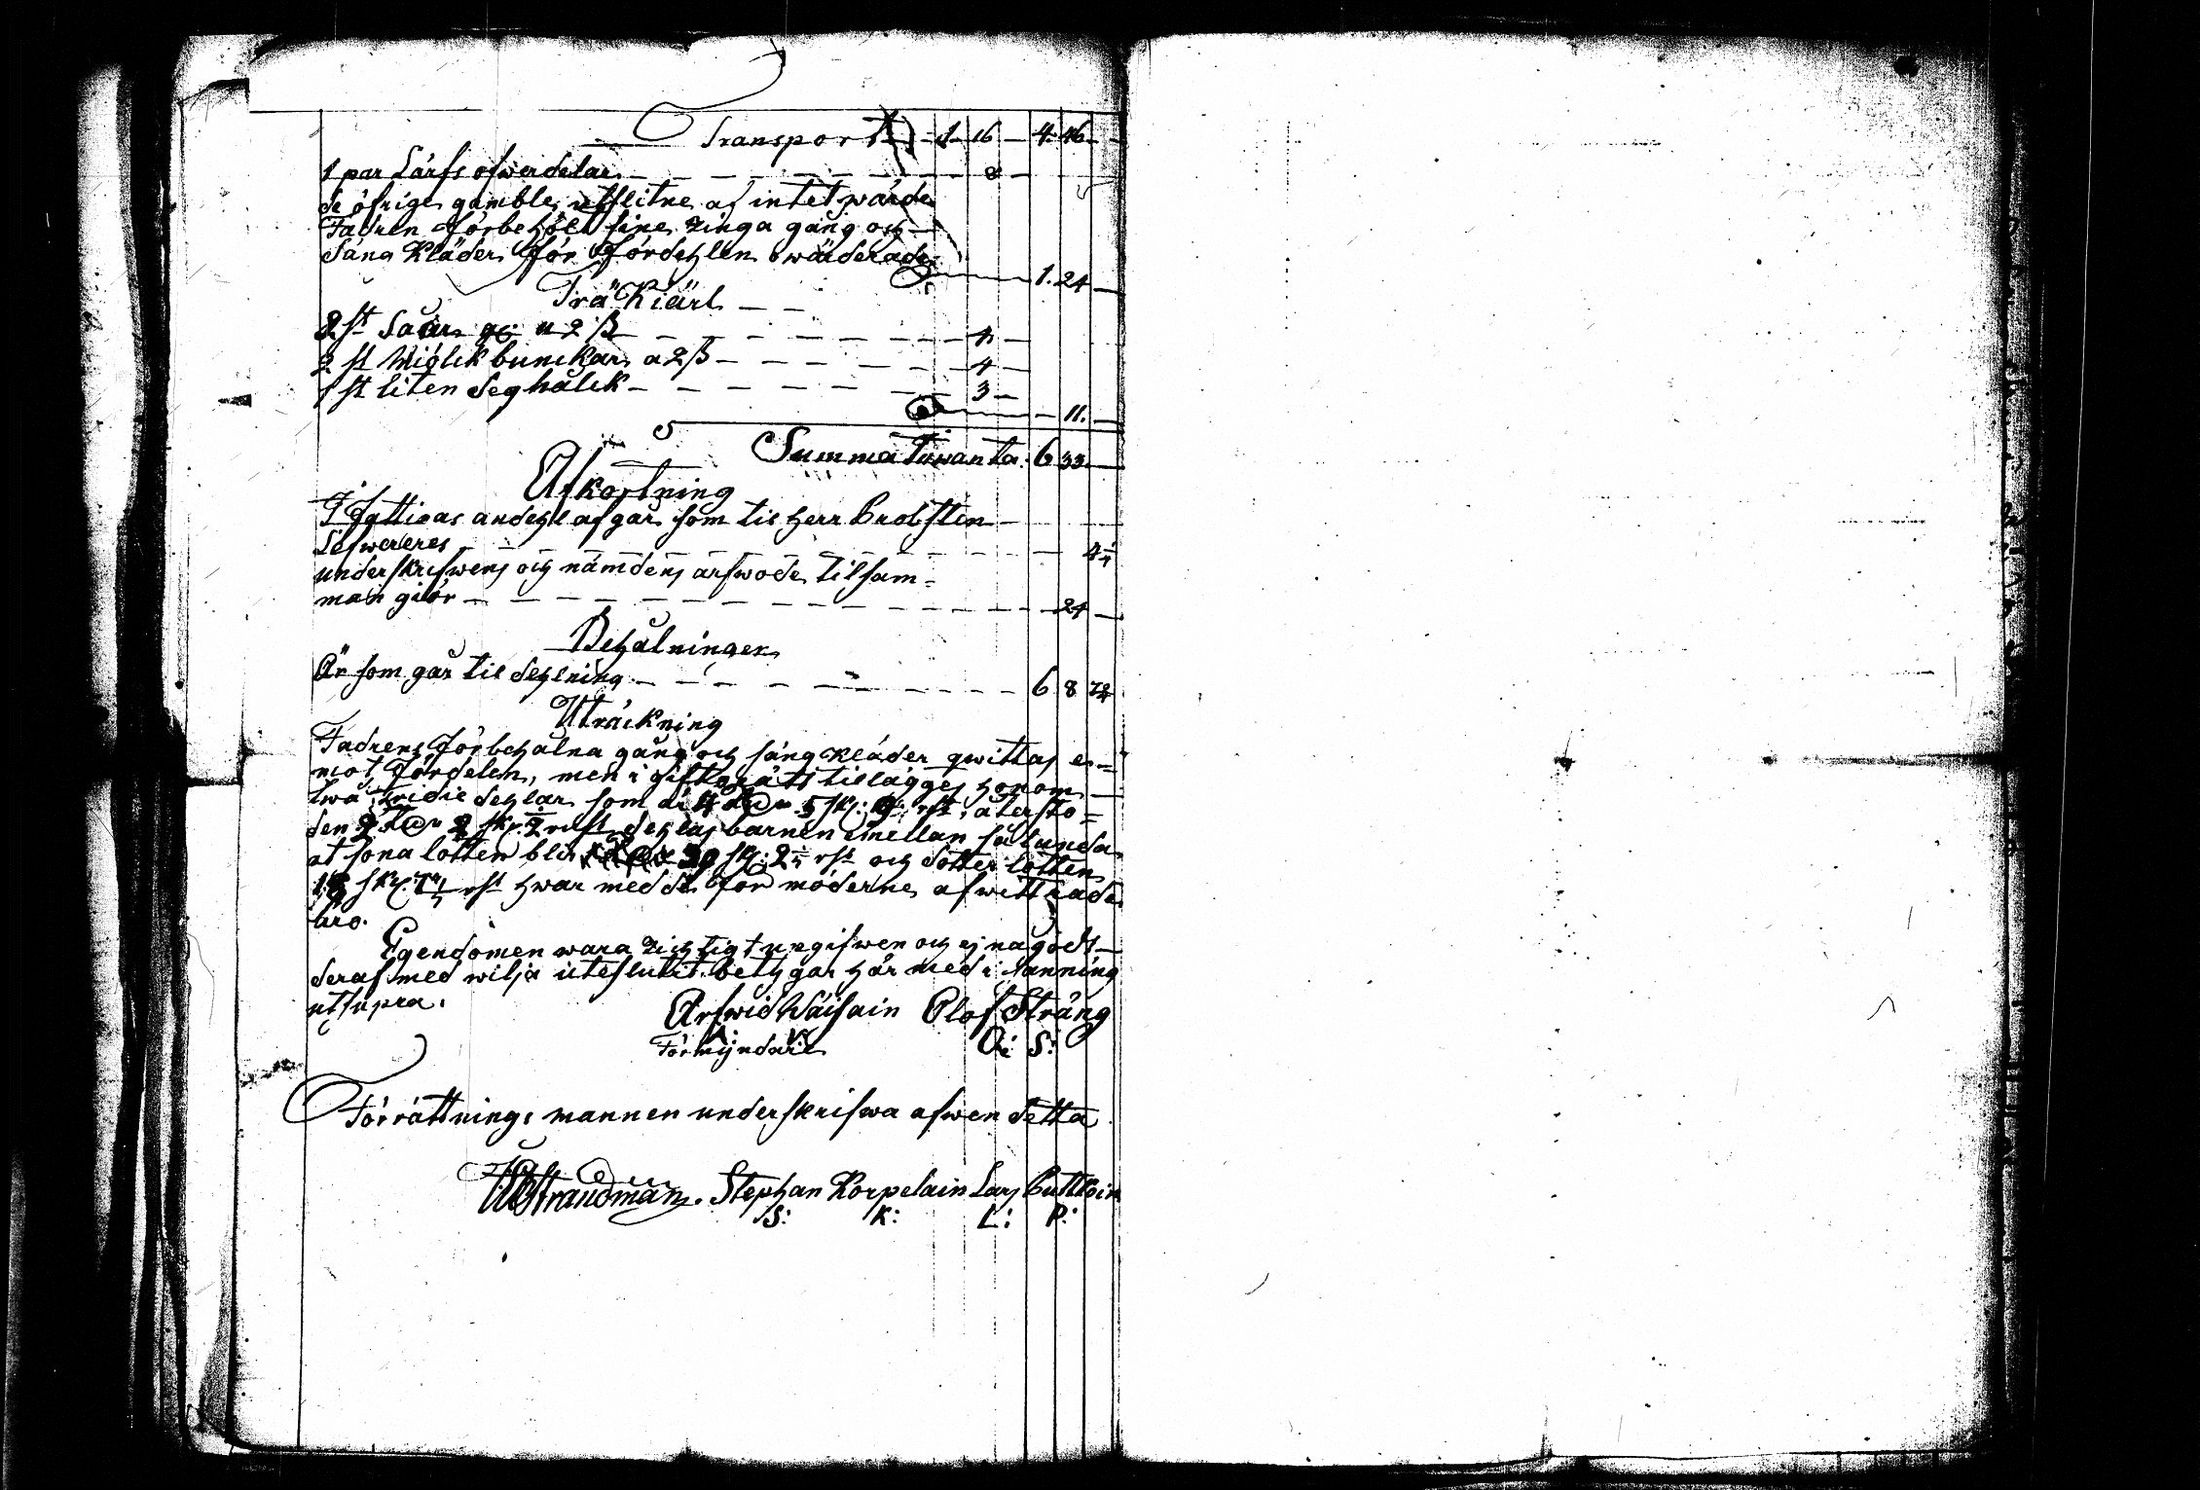 Transport - 1 16 - 4: 46 -
1 par Lärfs ofwerdelar - - - 8 -
de öfrige gamble utslitne af intet wärde
Fadren förbehölt sine ringa gång och
Säng Kläder för fördehlen owärderade
1. 24 -
Trä Kiärl
2 st Såår a 2 ß - - - 4 -
2 st Miölck bunckar a 2 ß - - - 4 -
1 st liten deg hålck - - - 3 -
- 11. -
Summa Inwanta 6 33 -
Afkortning
I fattigas andehl afgår som til Herr Probsten
Lefwereres - - - 4 1/4
underskrifwens och nämdens arfwode tilsam=
man giör - - - 24 -
Behålningen
Är som går til dehlning - - - 6 8
Uträckning
Fadrens förbehålna gång och säng kläder qwittas e=
mot fördelen, men i giftorätt tillägges honom
twå tridie dehlar som är 4 5 sk: rst, återsto=
den 2 2 sk. rst dehlas barnen emellan sålunda
at sona lotten blir sk: 2 rst och dotter lotten
sk: rst hwar med de för möderne afwittrade
äro.
Egendomen wara richtigt upgifwen och ej någodt
deraf med wilja uteslutit betygar här med i sanning
ut supra.
Arfwid Wäisain Olof Sträng
Förmyndare O: S:
Förrättnings mannen underskrifwa äfwen detta
Strandman. Stephan Korpelain Lars Puttoin
S: K: L: P: